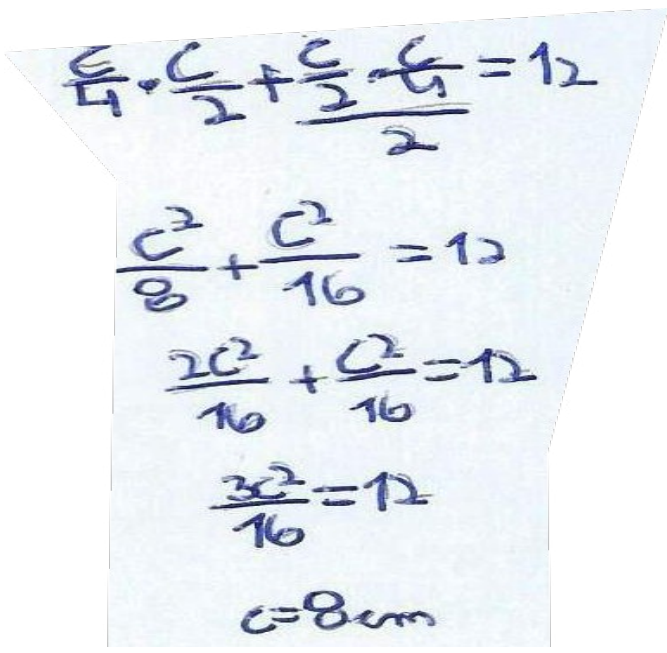 c/4 · c/2 + (c/2 · c/4)/2 = 12
c²/8 + c²/16 = 12
2c²/16 + c²/16 = 12
3c²/16 = 12
c = 8 cm